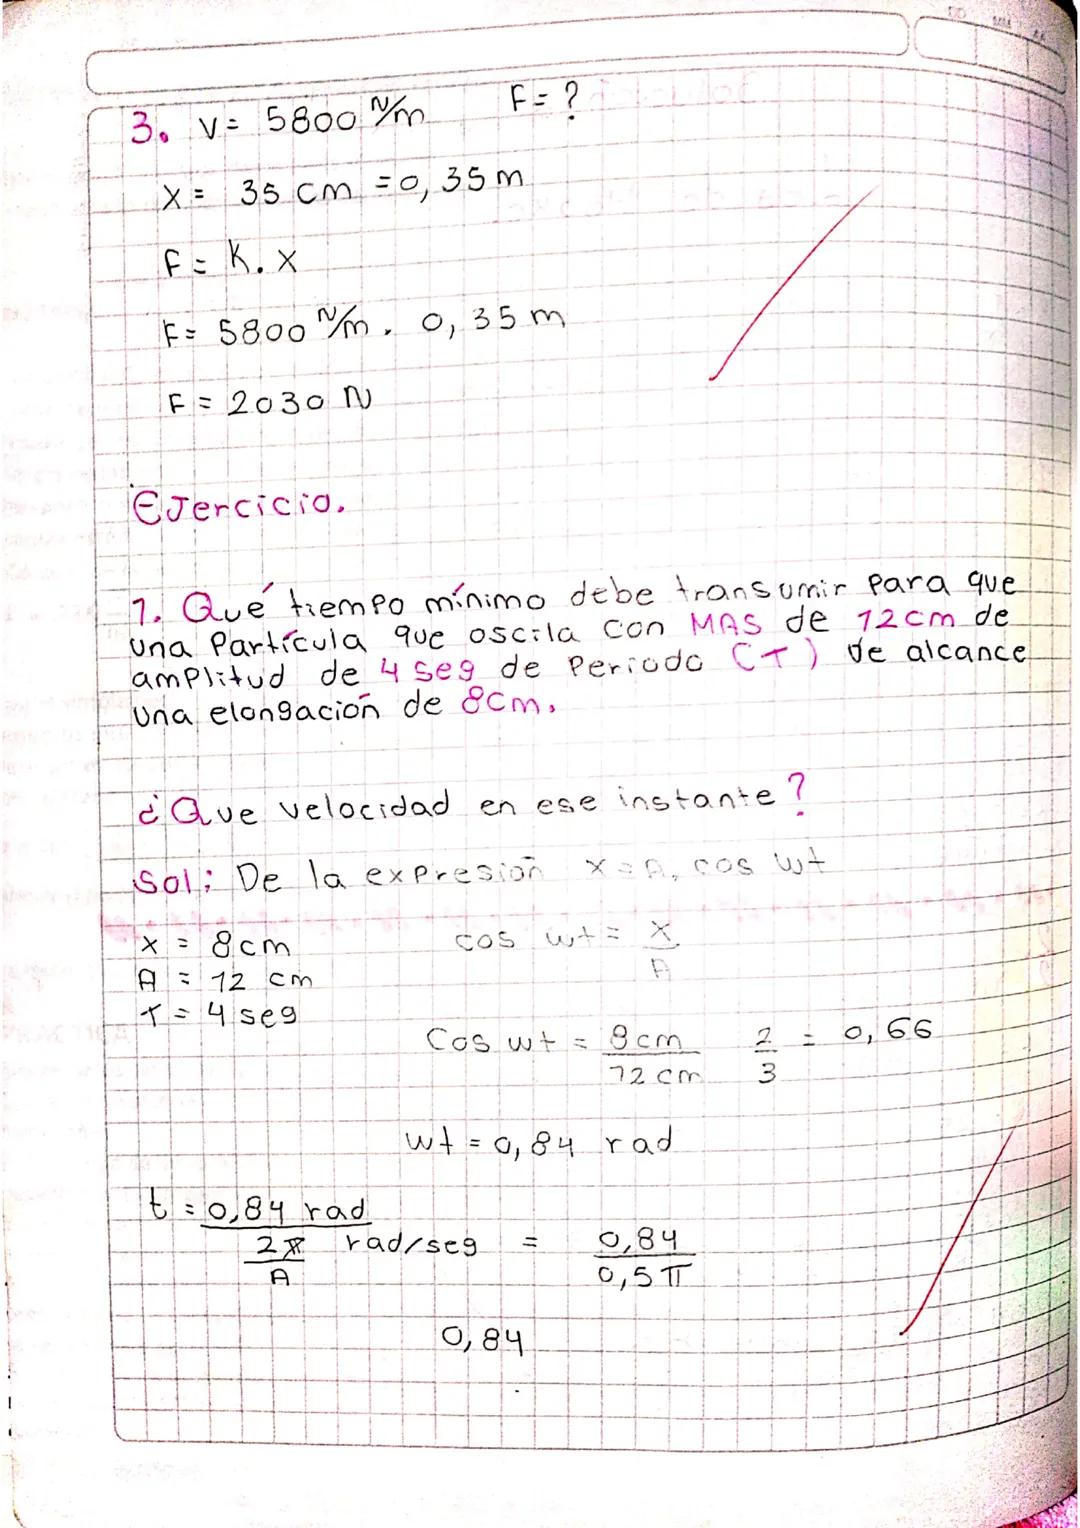 3. V= 5800 N/m F= ?
X= 35 cm = 0,35 m
F= K. X
F= 5800 N/m . 0,35 m
F= 2030 N
EJercicio.
1. Qué tiempo mínimo debe transumir Para que
una Partícula que oscila con MAS de 12cm de
amplitud de 4 seg de Periodo (T) de alcance
una elongación de 8cm.
¿Que velocidad en ese instante?
Sol: De la expresión x=A. cos wt
x = 8cm cos wt = X/A
A = 12 cm
T = 4 seg
Cos wt = 8cm/12 cm 2/3 = 0,66
wt = 0,84 rad
t = 0,84 rad / 2π/A rad/seg = 0,84/0,5π
0,84